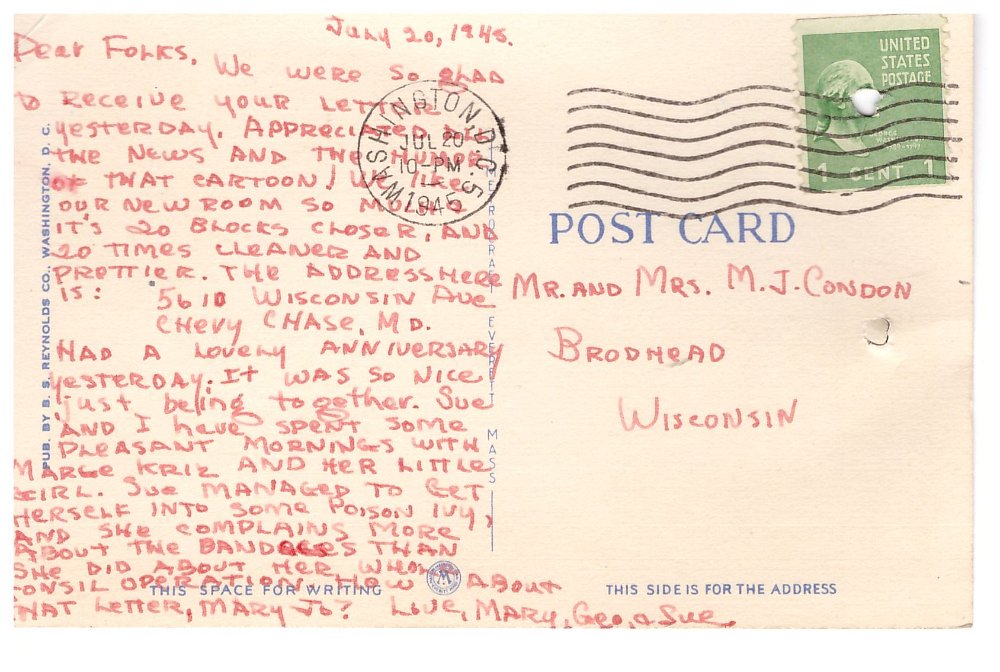 July 20, 1945.
Dear Folks,
We were so glad
to receive your letter
yesterday. Appreciated all
the news and the humor
of that cartoon! We like
our new room so much
it's 20 blocks closer, and
20 times cleaner and
prettier. The address here
is: 5610 Wisconsin Ave
Chevy Chase, Md.
Had a lovely anniversary
yesterday. It was so nice
just being together. Sue
and I have spent some
pleasant mornings with
Marge Kriz and her little
girl. Sue managed to get
herself into some poison ivy,
and she complains more
about the bandages than
she did about her whole
tonsil operation. How about
that letter, Mary Jo? Love, Mary, Geo, & Sue.
PUB. BY B. S. REYNOLDS CO., WASHINGTON, D. C.
EVERETT MASS
THIS SPACE FOR WRITING
WASHINGTON, D.C. 5
JUL 20
10-PM
1945
UNITED
STATES
POSTAGE
1 CENT 1
POST CARD
Mr. and Mrs. M. J. Condon
Brodhead
Wisconsin
THIS SIDE IS FOR THE ADDRESS